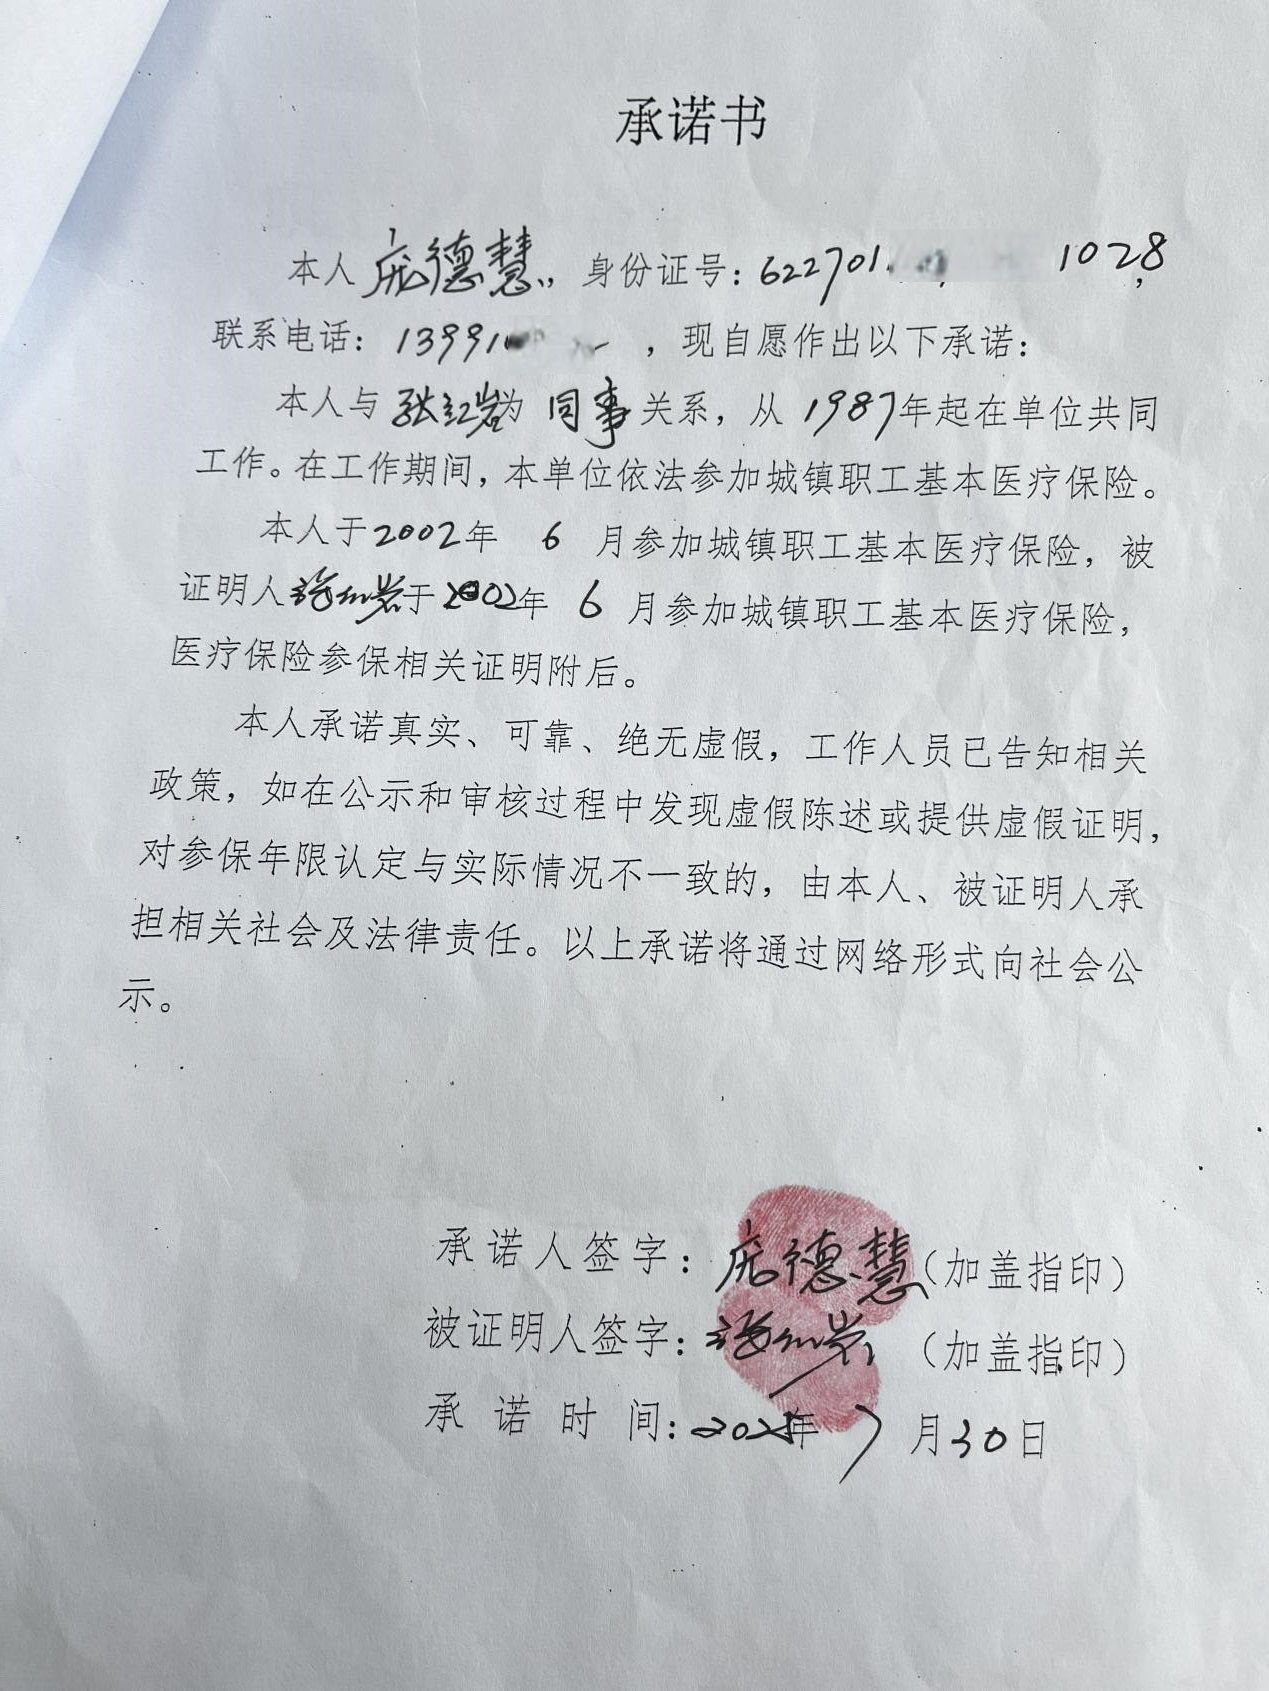 承诺书
本人庞德慧,,身份证号:622701 1028,
联系电话:13991 ,现自愿作出以下承诺:
本人与张红岩为 同事关系,从 1987年起在单位共同
工作。在工作期间,本单位依法参加城镇职工基本医疗保险。
本人于2002年 6 月参加城镇职工基本医疗保险,被
证明人张红岩于2002年 6 月参加城镇职工基本医疗保险,
医疗保险参保相关证明附后。
本人承诺真实、可靠、绝无虚假,工作人员已告知相关
政策,如在公示和审核过程中发现虚假陈述或提供虚假证明,
对参保年限认定与实际情况不一致的,由本人、被证明人承
担相关社会及法律责任。以上承诺将通过网络形式向社会公
示。
承诺人签字:庞德慧(加盖指印)
被证明人签字:张红岩(加盖指印)
承诺时间:2025年 7 月30日